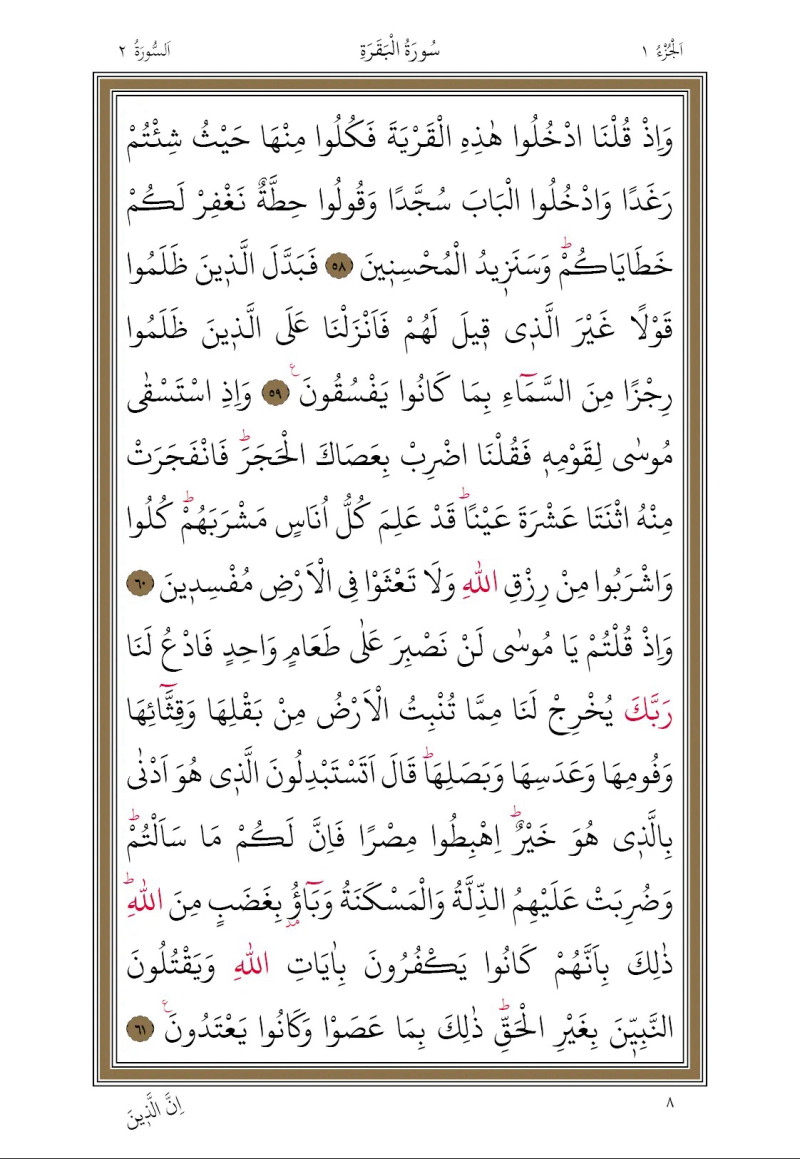 اَلْجُزْءُ ١ سُورَةُ الْبَقَرَةِ اَلسُّورَةُ ٢
وَاِذْ قُلْنَا ادْخُلُوا هٰذِهِ الْقَرْيَةَ فَكُلُوا مِنْهَا حَيْثُ شِئْتُمْ
رَغَدًا وَادْخُلُوا الْبَابَ سُجَّدًا وَقُولُوا حِطَّةٌ نَغْفِرْ لَكُمْ
خَطَايَاكُمْۜ وَسَنَزٖيدُ الْمُحْسِنٖينَ ٥٨ فَبَدَّلَ الَّذٖينَ ظَلَمُوا
قَوْلًا غَيْرَ الَّذٖى قٖيلَ لَهُمْ فَاَنْزَلْنَا عَلَى الَّذٖينَ ظَلَمُوا
رِجْزًا مِنَ السَّمَٓاءِ بِمَا كَانُوا يَفْسُقُونَ ع ٥٩ وَاِذِ اسْتَسْقٰى
مُوسٰى لِقَوْمِهٖ فَقُلْنَا اضْرِبْ بِعَصَاكَ الْحَجَرَؕ فَانْفَجَرَتْ
مِنْهُ اثْنَتَا عَشْرَةَ عَيْنًاؕ قَدْ عَلِمَ كُلُّ اُنَاسٍ مَشْرَبَهُمْؕ كُلُوا
وَاشْرَبُوا مِنْ رِزْقِ اللّٰهِ وَلَا تَعْثَوْا فِى الْاَرْضِ مُفْسِدٖينَ ٦٠
وَاِذْ قُلْتُمْ يَا مُوسٰى لَنْ نَصْبِرَ عَلٰى طَعَامٍ وَاحِدٍ فَادْعُ لَنَا
رَبَّكَ يُخْرِجْ لَنَا مِمَّا تُنْبِتُ الْاَرْضُ مِنْ بَقْلِهَا وَقِثَّٓائِهَا
وَفُومِهَا وَعَدَسِهَا وَبَصَلِهَاؕ قَالَ اَتَسْتَبْدِلُونَ الَّذٖى هُوَ اَدْنٰى
بِالَّذٖى هُوَ خَيْرٌؕ اِهْبِطُوا مِصْرًا فَاِنَّ لَكُمْ مَا سَاَلْتُمْؕ
وَضُرِبَتْ عَلَيْهِمُ الذِّلَّةُ وَالْمَسْكَنَةُ وَبَٓاؤُ بِغَضَبٍ مِنَ اللّٰهِؕ
ذٰلِكَ بِاَنَّهُمْ كَانُوا يَكْفُرُونَ بِاٰيَاتِ اللّٰهِ وَيَقْتُلُونَ
النَّبِيّٖنَ بِغَيْرِ الْحَقِّؕ ذٰلِكَ بِمَا عَصَوْا وَكَانُوا يَعْتَدُونَ ع ٦١
٨ اِنَّ الَّذٖينَ